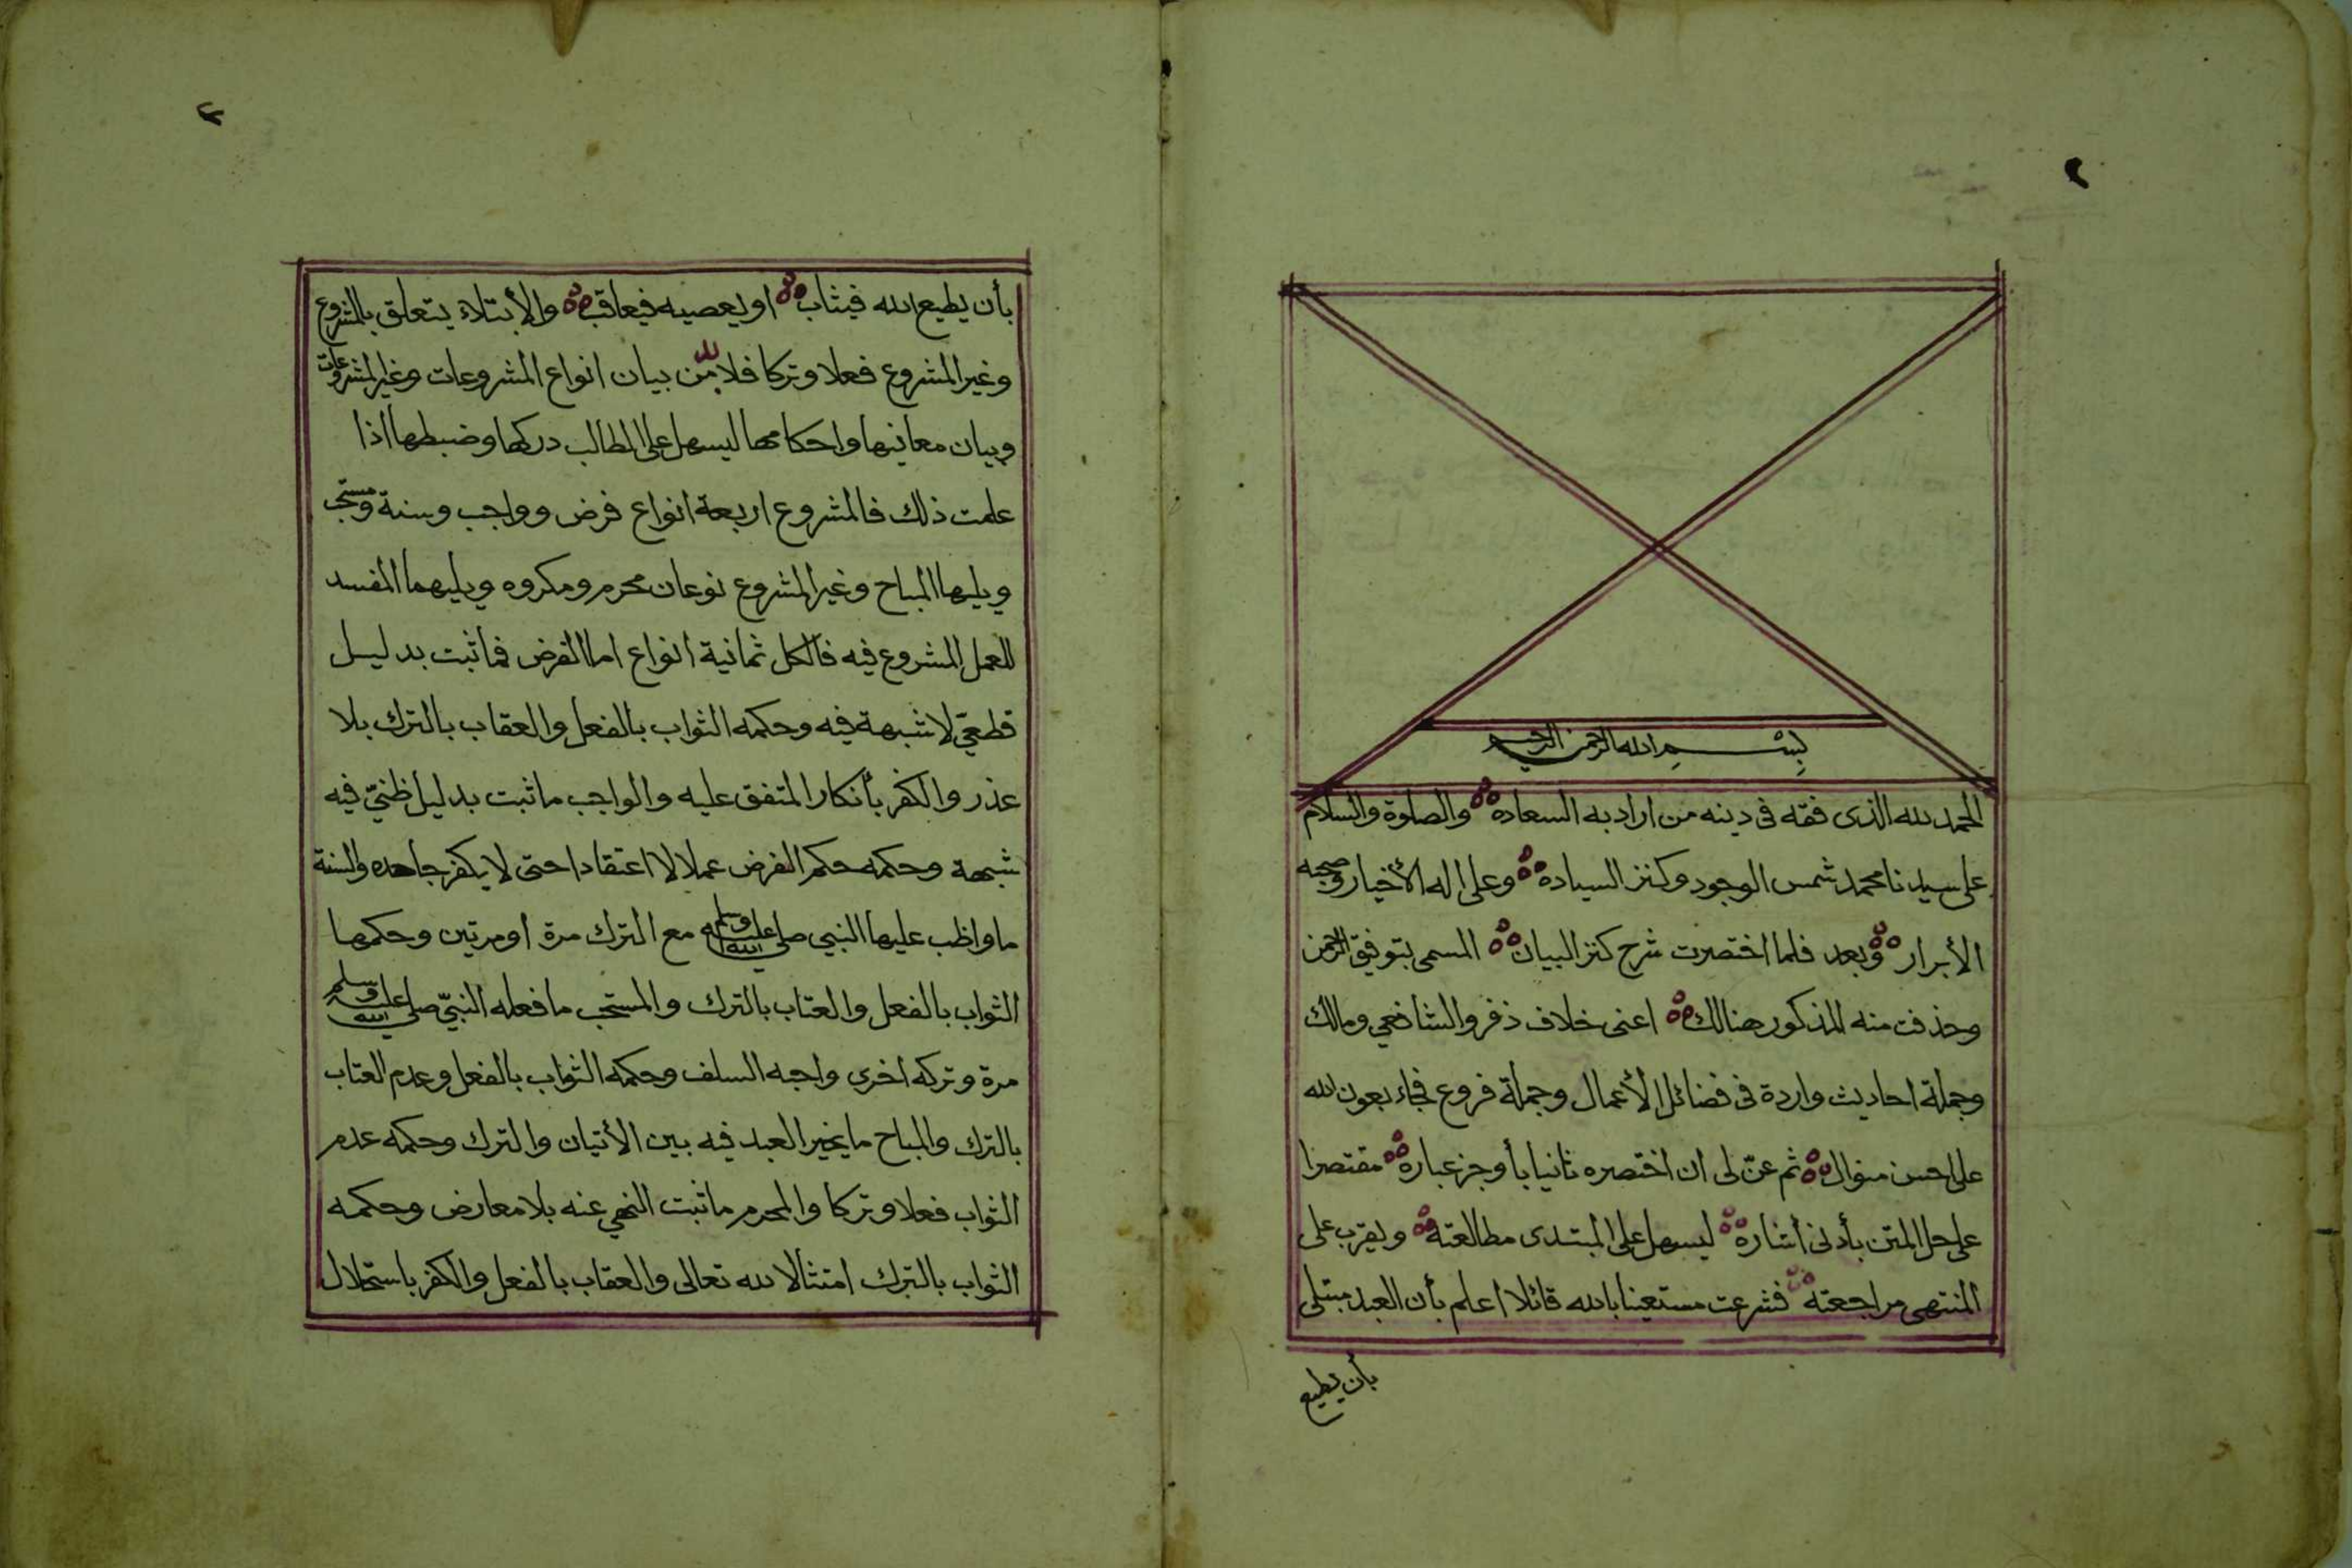 ٢
بسم الله الرحمن الرحيم
الحمد لله الذى فقه فى دينه من اراد به السعاده والصلوة والسلام
على سيدنا محمد شمس الوجود وكنز السياده وعلى اله الأخيار وصحبه
الأبرار وبعد فلما اختصرت شرح كنز البيان المسمى بتوفيق الرحمن
وحذفت منه المذكور هنالك اعنى خلاف زفر والشافعي ومالك
وجملة احاديث واردة فى فضائل الأعمال وجملة فروع فجاء بعون الله
على احسن منوال ثم عنّ لى ان اختصره ثانيا بأوجز عباره مقتصرا
على حل المتن بأدنى أشاره ليسهل على المبتدى مطالعته ويقرب على
المنتهى مراجعته فشرعت مستعينا بالله قائلا اعلم بأن العبد مبتلى
بأن يطيع
بأن يطيع الله فيثاب او يعصيه فيعاقب والأبتلاء يتعلق بالمشروع
وغير المشروع فعلا وتركا فلا بد من بيان انواع المشروعات وغير المشروعات
وبيان معانيها واحكامها ليسهل على الطالب دركها وضبطها اذا
علمت ذلك فالمشروع اربعة انواع فرض وواجب وسنة ومستحب
ويليها المباح وغير المشروع نوعان محرم ومكروه ويليهما المفسد
للعمل المشروع فيه فالكل ثمانية انواع اما الفرض فما ثبت بدليل
قطعيّ لا شبهة فيه وحكمه الثواب بالفعل والعقاب بالترك بلا
عذر والكفر بأنكار المتفق عليه والواجب ما ثبت بدليل ظنيّ فيه
شبهة وحكمه حكم الفرض عملا لا اعتقادا حتى لا يكفر جاحده والسنة
ما واظب عليها النبي صلى الله عليه وسلم مع الترك مرة أو مرتين وحكمها
الثواب بالفعل والعتاب بالترك والمستحب ما فعله النبيّ صلى الله عليه وسلم
مرة وتركه اخرى واحبه السلف وحكمه الثواب بالفعل وعدم العتاب
بالترك والمباح ما يخير العبد فيه بين الأتيان والترك وحكمه عدم
الثواب فعلا وتركا والمحرم ما ثبت النهي عنه بلا معارض وحكمه
الثواب بالترك امتثالا لله تعالى والعقاب بالفعل والكفر باستحلال